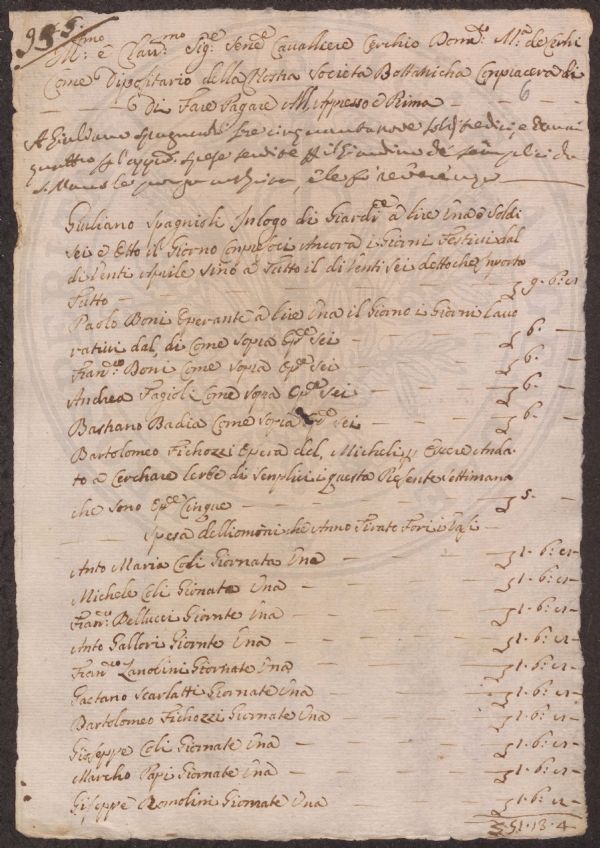 955.
Ill:mo e Clar:mo Sig:e Sen:e Cavalliere Cerchio Dom:co M:a de Cerchi
Come Dipositario della Nostra Societa Bottanicha Conpiacera di
6 Di Fare Pagare All Appresso e Prima
6
A Giuliano Spagnioli lire cinquantanove soldi tredici e danai
quattro p l'appie spese servite p il Giardino de semplici da
Giuliano Spagnioli In logo di Giard:re a lire Una e Soldi
Sei e Otto il Giorno Conpresoci Ancora i Giorni Festivi dal
di Venti Aprile Sino a Tutto il di Venti Sei detto che inporto
Tutto — 9. 6: 8
Paolo Boni Operante a lire Una il Giorno i Giorni Lavo
rativi dal di Come Sopra Op:e Sei — 6. —
Fran:co Boni Come Sopra Op:e Sei — 6. —
Andrea Fagioli Come Sopra Op:e Sei — 6. —
Bastiano Badia Come Sopra Op:e Sei — 6. —
Bartolomeo Fichozzi Opera del Micheli p Essere Anda
to a Cerchare lerbe di Senplici i questa Presente Settimana
che Sono Op:e Cinque — 5. —
Spesa delliomini che Anno Tirato Fori i Vasi —
Anto Maria Coli Giornata Una — 1. 6: 8
Michele Coli Gionata Una — 1. 6: 8
Fran:co Bellucci Giornte Una — 1. 6: 8
Anto Gallori Giornte Una — 1. 6: 8
Fran:co Zanolini Giornate Una — 1. 6: 8
Gaetano Scarlatti Giornate Una — 1. 6: 8
Bartolomeo Fichozzi Giornate Una — 1. 6: 8
Gioseppe Coli Giornate Una — 1. 6: 8
Marcho Papi Giornate Una — 1. 6: 8
Giseppe Romolini Giornate Una — 1. 6: 8
51. 13. 4